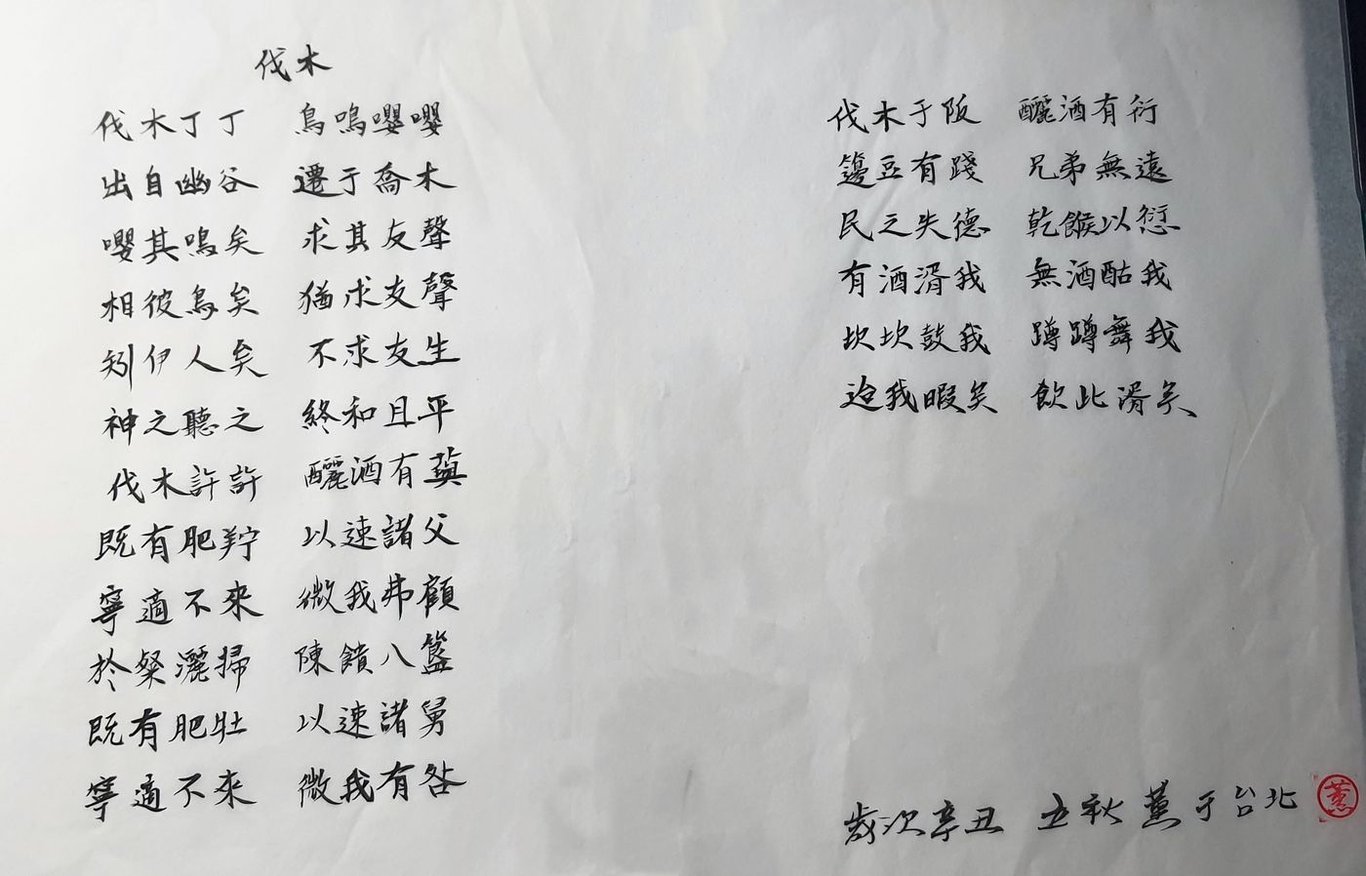 伐木
伐木丁丁 鳥鳴嚶嚶
出自幽谷 遷于喬木
嚶其鳴矣 求其友聲
相彼鳥矣 猶求友聲
矧伊人矣 不求友生
神之聽之 終和且平
伐木許許 釃酒有藇
既有肥羜 以速諸父
寧適不來 微我弗顧
於粲灑掃 陳饋八簋
既有肥牡 以速諸舅
寧適不來 微我有咎
伐木于阪 釃酒有衍
籩豆有踐 兄弟無遠
民之失德 乾餱以愆
有酒湑我 無酒酤我
坎坎鼓我 蹲蹲舞我
迨我暇矣 飲此湑矣
歲次辛丑 立秋 薰于台北
薰